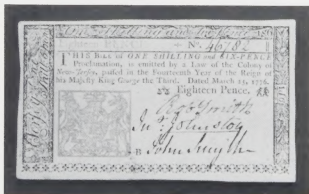 N.º 46782
THIS BILL of ONE SHILLING and SIX-PENCE
Proclamation, is emitted by a Law of the Colony of
New-Jersey, passed in the Fourteenth Year of the Reign of
his Majesty King George the Third. Dated March 25, 1776.
Eighteen Pence.
Smith
Jn.º Johnston
John Smyth